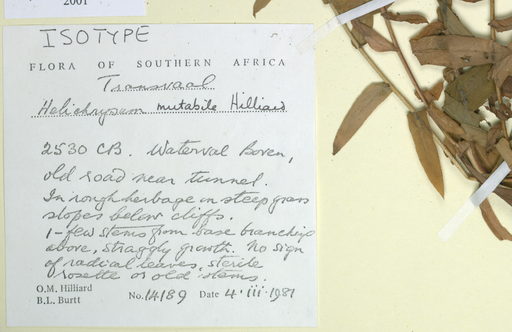 2001
ISOTYPE
FLORA OF SOUTHERN AFRICA
Transvaal
Helichrysum mutabile Hilliard
2530 CB. Waterval Boven,
old road near tunnel.
In rough herbage in steep grass
slopes below cliffs.
1-few stems from base branching
above, straggly growth. No sign
of radical leaves, sterile
rosette or old stems.
O.M. Hilliard
B.L. Burtt No. 14189 Date 4.iii.1981